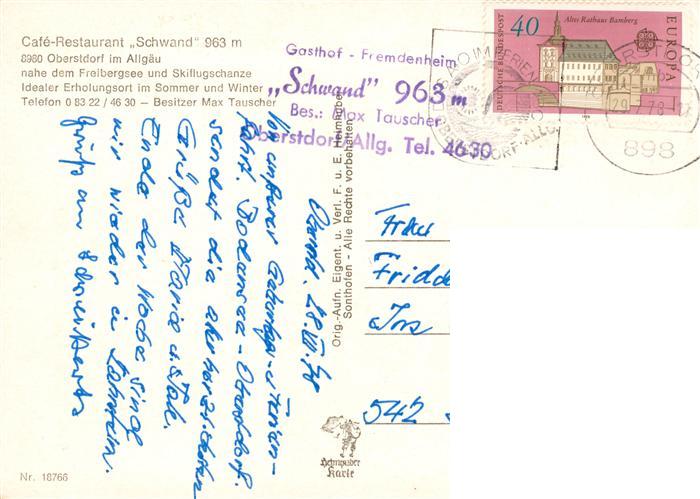 Café-Restaurant „Schwand" 963 m
8980 Oberstdorf im Allgäu
nahe dem Freibergsee und Skiflugschanze
Idealer Erholungsort im Sommer und Winter
Telefon 0 83 22 / 46 30 – Besitzer Max Tauscher
Gasthof - Fremdenheim
„Schwand" 963 m
Bes.: Max Tauscher
Oberstdorf Allg. Tel. 4630
40
Altes Rathaus Bamberg
EUROPA
DEUTSCHE BUNDESPOST
898
Orig.-Aufn. Eigent. u. Verl. F. u. E. Heimhuber
Sonthofen - Alle Rechte vorbehalten
28.VII.78
Von unserer Geburtstags-Ferien-
fahrt. Bodensee - Oberstdorf.
sendet die allerherzlichsten
Grüße Maria u.
Ende der Woche sind
wir wieder in Lahnstein.
Frau
542
Heimhuber
Karte
Nr. 18766